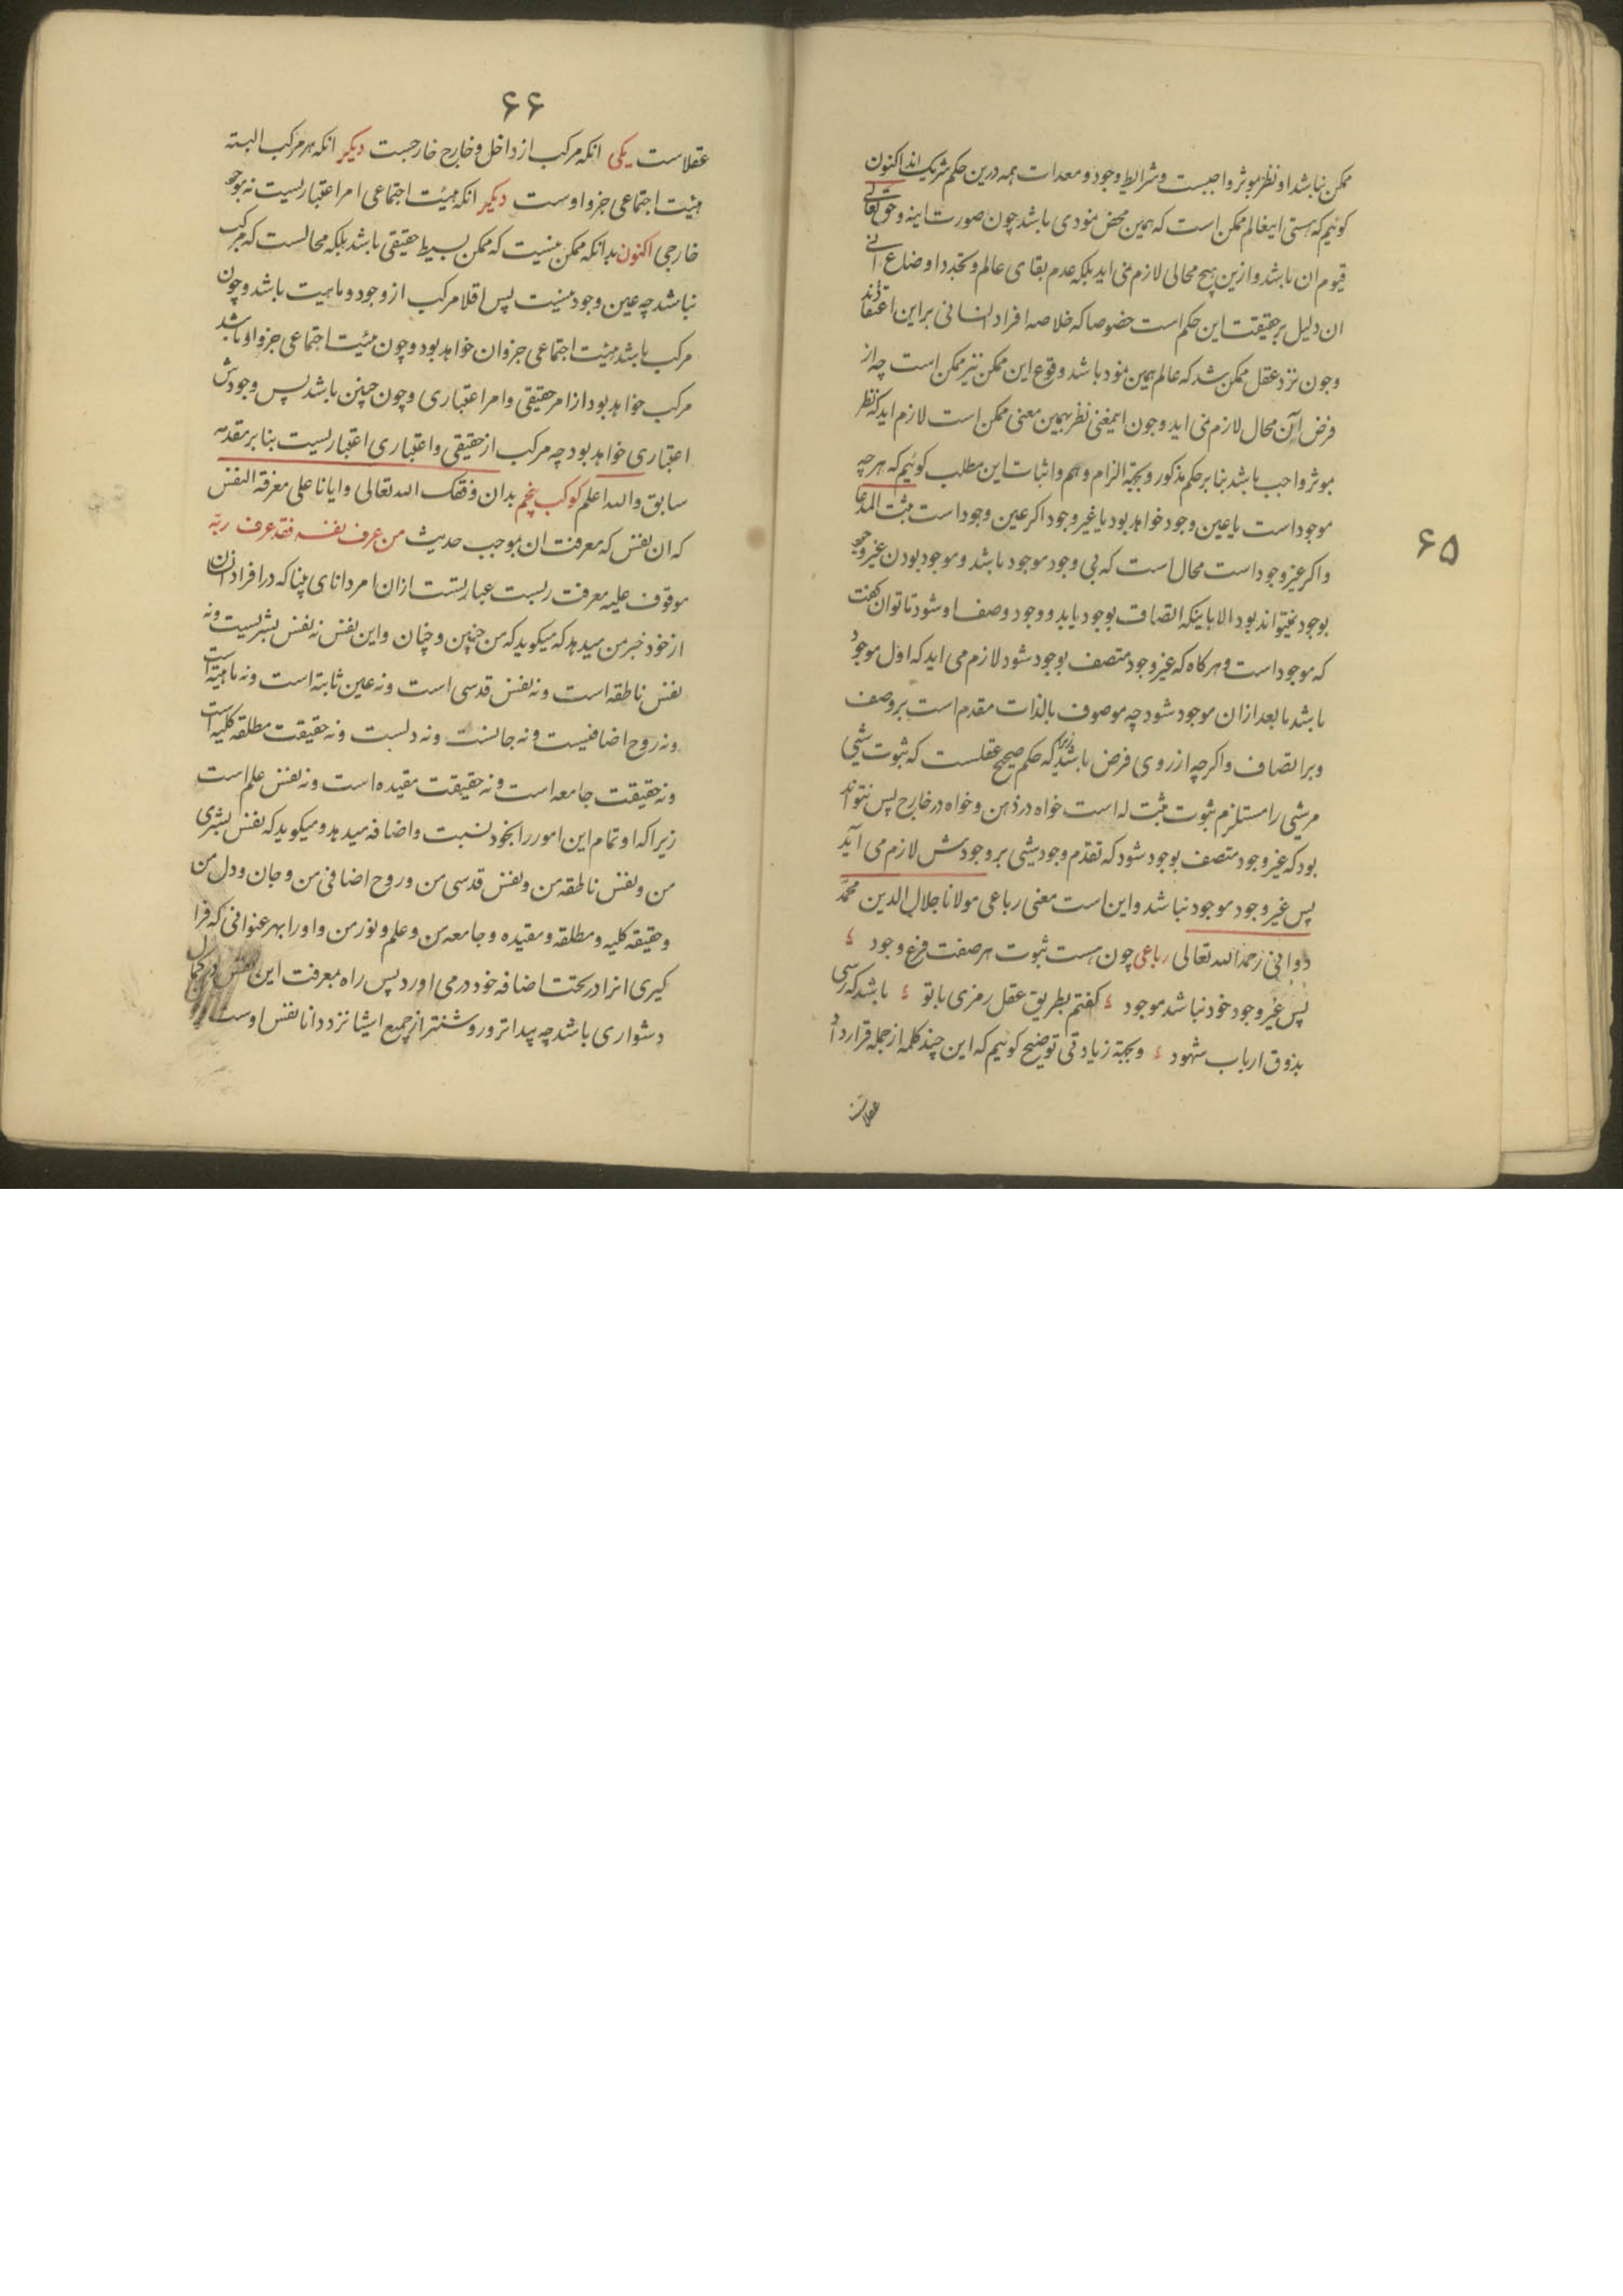 ۶۵
ممکن نباشد او نظر بموثر واجبست و شرایط وجود و معدات همه درین حکم شریک اند اکنون
کوئیم که هستی اینعالم ممکن است که همین محض نمودی باشد چون صورت اینه و حق تعالی
قیوم ان باشد و ازین هیچ محالی لازم نمی اید بلکه عدم بقای عالم و تجدد اوضاع
ان دلیل بر حقیقت این حکم است خصوصا که خلاصه افراد انسانی براین اعتقادند
و چون نزد عقل ممکن شد که عالم همین نمود باشد وقوع این ممکن نیز ممکن است چه از
فرض آن محال لازم نمی اید و چون اینمعنی نظر بهمین معنی ممکن است لازم اید که نظر
بموثر واجب باشد بنابر حکم مذکور و بجهة الزام وهم و اثبات این مطلب کوئیم که هر چه
موجود است یا عین وجود خواهد بود یا غیر وجود اکر عین وجود است ثبت المدعا
و اکر غیر وجود است محال است که بی وجود موجود باشد و موجود بودن غیر وجود
بوجود نمیتواند بود الا باینکه اتصاف بوجود یابد و وجود وصف او شود تا توان کفت
که موجود است و هرکاه که غیر وجود متصف بوجود شود لازم می اید که اول موجود
باشد بعد ازان موجود شود چه موصوف بالذات مقدم است بر وصف
و بر اتصاف و اکرچه از روی فرض باشد زیرا که حکم صحیح عقلست که ثبوت شیئ
مر شیئ را مستلزم ثبوت مثبت له است خواه در ذهن و خواه در خارج پس نتواند
بود که غیر وجود متصف بوجود شود که تقدم وجود شیئ بر وجودش لازم می آید
پس غیر وجود موجود نباشد و این است معنی رباعی مولانا جلال الدین محمد
دوانی رحمه الله تعالی رباعی چون هست ثبوت هر صفت فرع وجود
پس غیر وجود خود نباشد موجود کفتم بطریق عقل رمزی با تو باشد که رسی
بذوق ارباب شهود و بجهة زیادتی توضیح کوئیم که این چند کلمه از جمله قرارداد
عقلاست
۶۶
عقلاست یکی انکه مرکب از داخل و خارج خارجست دیکر انکه هر مرکب البته
هیئت اجتماعی جزو اوست دیکر انکه هیئت اجتماعی امر اعتباریست نه موجود
خارجی اکنون بدانکه ممکن نیست که ممکن بسیط حقیقی باشد بلکه محالست که مرکب
نباشد چه عین وجود نیست پس اقلا مرکب از وجود و ماهیت باشد و چون
مرکب باشد هیئت اجتماعی جزو ان خواهد بود و چون هیئت اجتماعی جزو او باشد
مرکب خواهد بود از امر حقیقی و امر اعتباری و چون چنین باشد پس وجودش
اعتباری خواهد بود چه مرکب از حقیقی و اعتباری اعتباریست بنابر مقدمه
سابق والله اعلم کوکب پنجم بدان وفقک الله تعالی و ایانا علی معرفة النفس
که ان نفس که معرفت ان بموجب حدیث من عرف نفسه فقد عرف ربه
موقوف علیه معرفت ربست عبارتست ازان امر دانای بینا که در افراد انسان
از خود خبر من میدهد که میکوید که من چنین و چنان و این نفس نه نفس بشریست و نه
نفس ناطقه است و نه نفس قدسی است و نه عین ثابته است و نه ماهیة است
و نه روح اضافیست و نه جانست و نه دلست و نه حقیقت مطلقه کلیه است
و نه حقیقت جامعه است و نه حقیقت مقیده است و نه نفس علم است
زیرا که او تمام این امور را بخود نسبت و اضافه میدهد و میکوید که نفس بشری
من و نفس ناطقه من و نفس قدسی من و روح اضافی من و جان و دل من
و حقیقه کلیه و مطلقه و مقیده و جامعه من و علم و نور من و او را بهر عنوانی که فرا
کیری انرا در تحت اضافه خود در می اورد پس راه معرفت این نفس در کمال
دشواری باشد چه پیداتر و روشنتر از جمیع اشیا نزد دانا نفس اوست